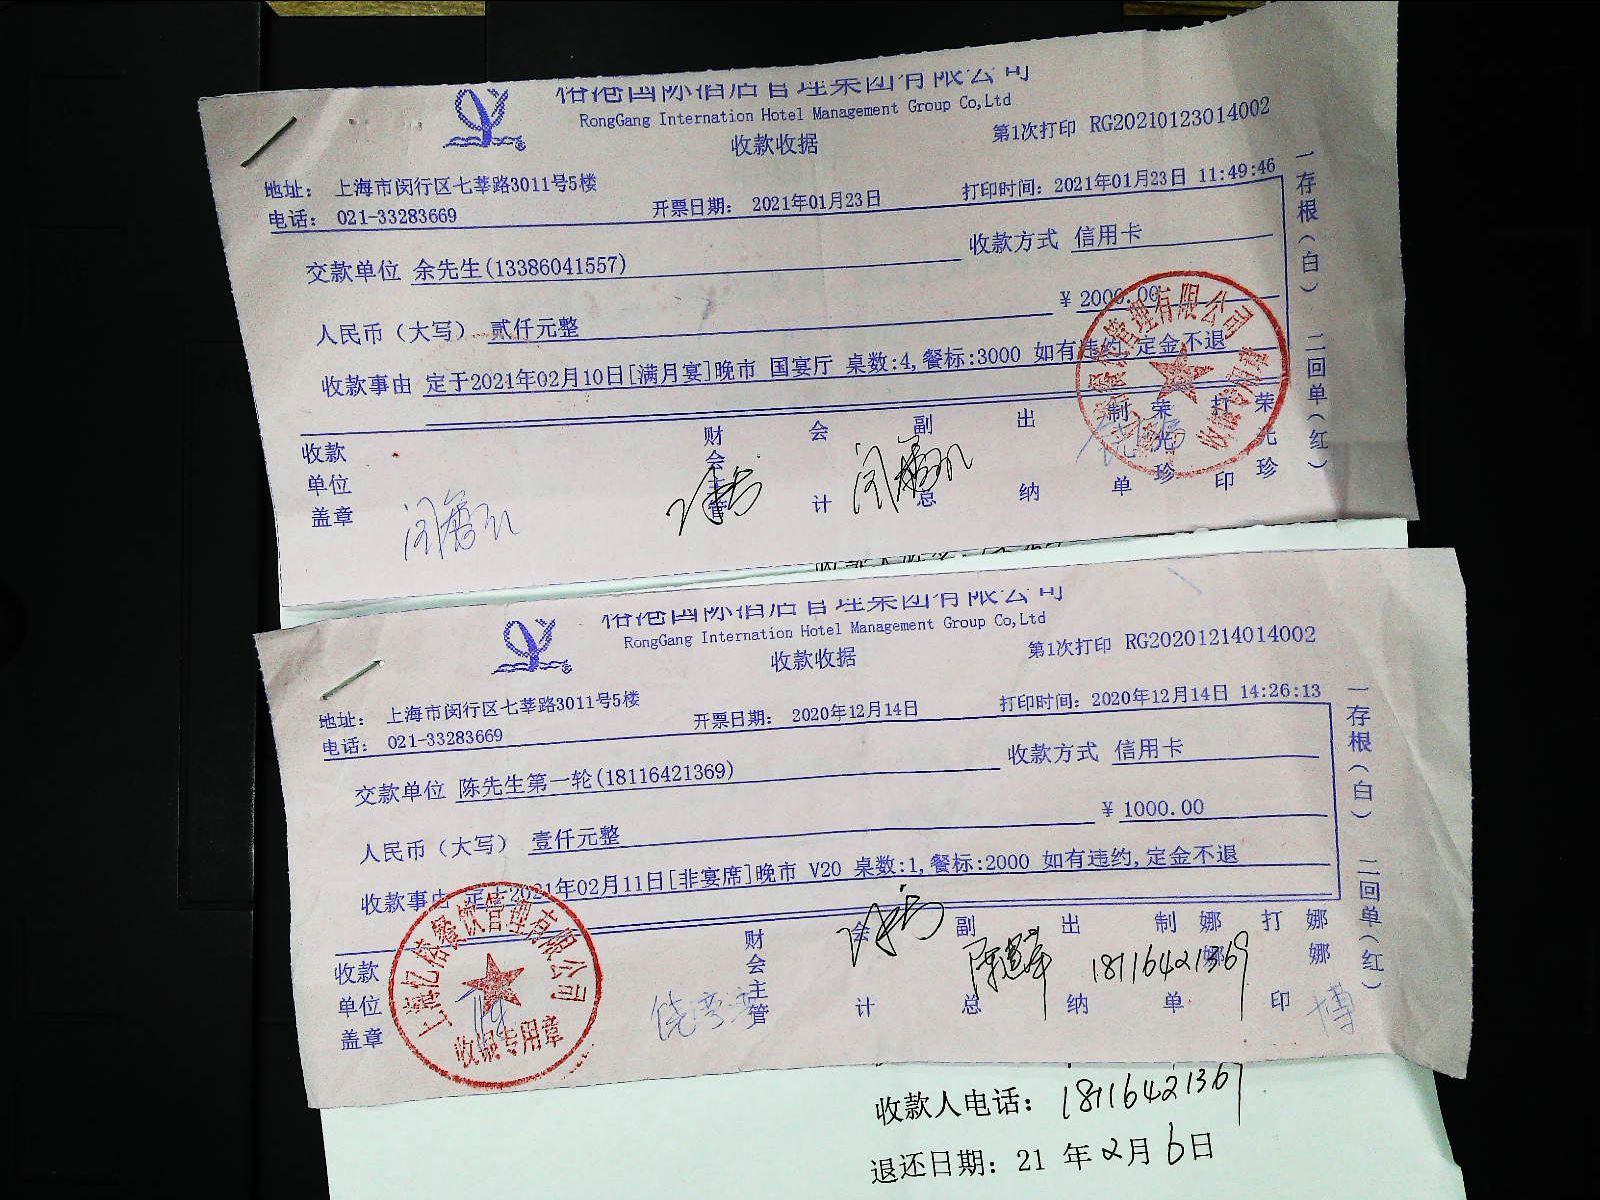 裕港国际酒店管理集团有限公司
RongGang Internation Hotel Management Group Co,Ltd
收款收据
第1次打印 RG20210123014002
地址： 上海市闵行区七莘路3011号5楼
电话： 021-33283669
开票日期： 2021年01月23日
打印时间：2021年01月23日 11:49:46
交款单位 余先生(13386041557)
收款方式 信用卡
人民币（大写） 贰仟元整
￥ 2000.00
收款事由 定于2021年02月10日[满月宴]晚市 国宴厅 桌数:4,餐标:3000 如有违约,定金不退
收款单位盖章
财会主管
会计
副总
出纳
制单 荣光珍
打印 荣光珍
一存根（白） 二回单（红）
管理有限公司
收银专用章
裕港国际酒店管理集团有限公司
RongGang Internation Hotel Management Group Co,Ltd
收款收据
第1次打印 RG20201214014002
地址： 上海市闵行区七莘路3011号5楼
电话： 021-33283669
开票日期： 2020年12月14日
打印时间：2020年12月14日 14:26:13
交款单位 陈先生第一轮(18116421369)
收款方式 信用卡
人民币（大写） 壹仟元整
￥ 1000.00
收款事由 定于2021年02月11日[非宴席]晚市 V20 桌数:1,餐标:2000 如有违约,定金不退
收款单位盖章
财会主管
会计
副总
出纳
制单 娜娜
打印 娜娜
18116421369
一存根（白） 二回单（红）
上海亿格餐饮管理有限公司
收银专用章
收款人电话： 18116421369
退还日期：21 年2月6日